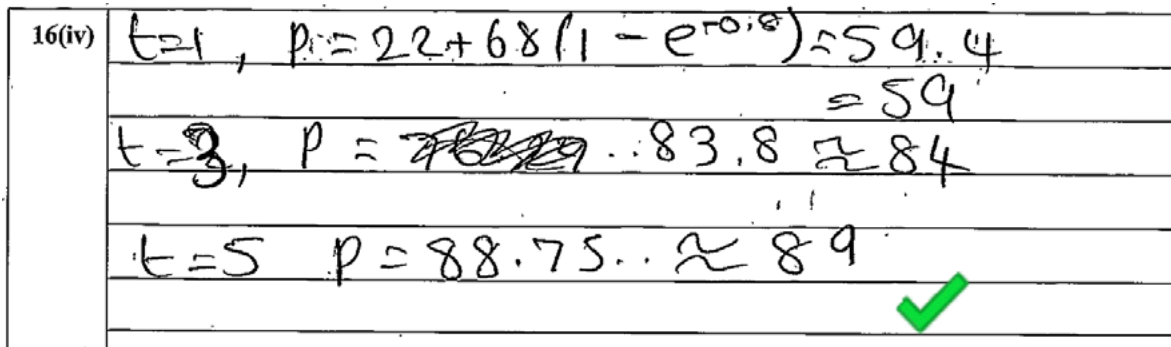 16(iv) t=1, p = 22+68(1 - e^-0.8) = 59.4
= 59
t=3, P = ..83.8 ≈ 84
t=5 P = 88.75.. ≈ 89